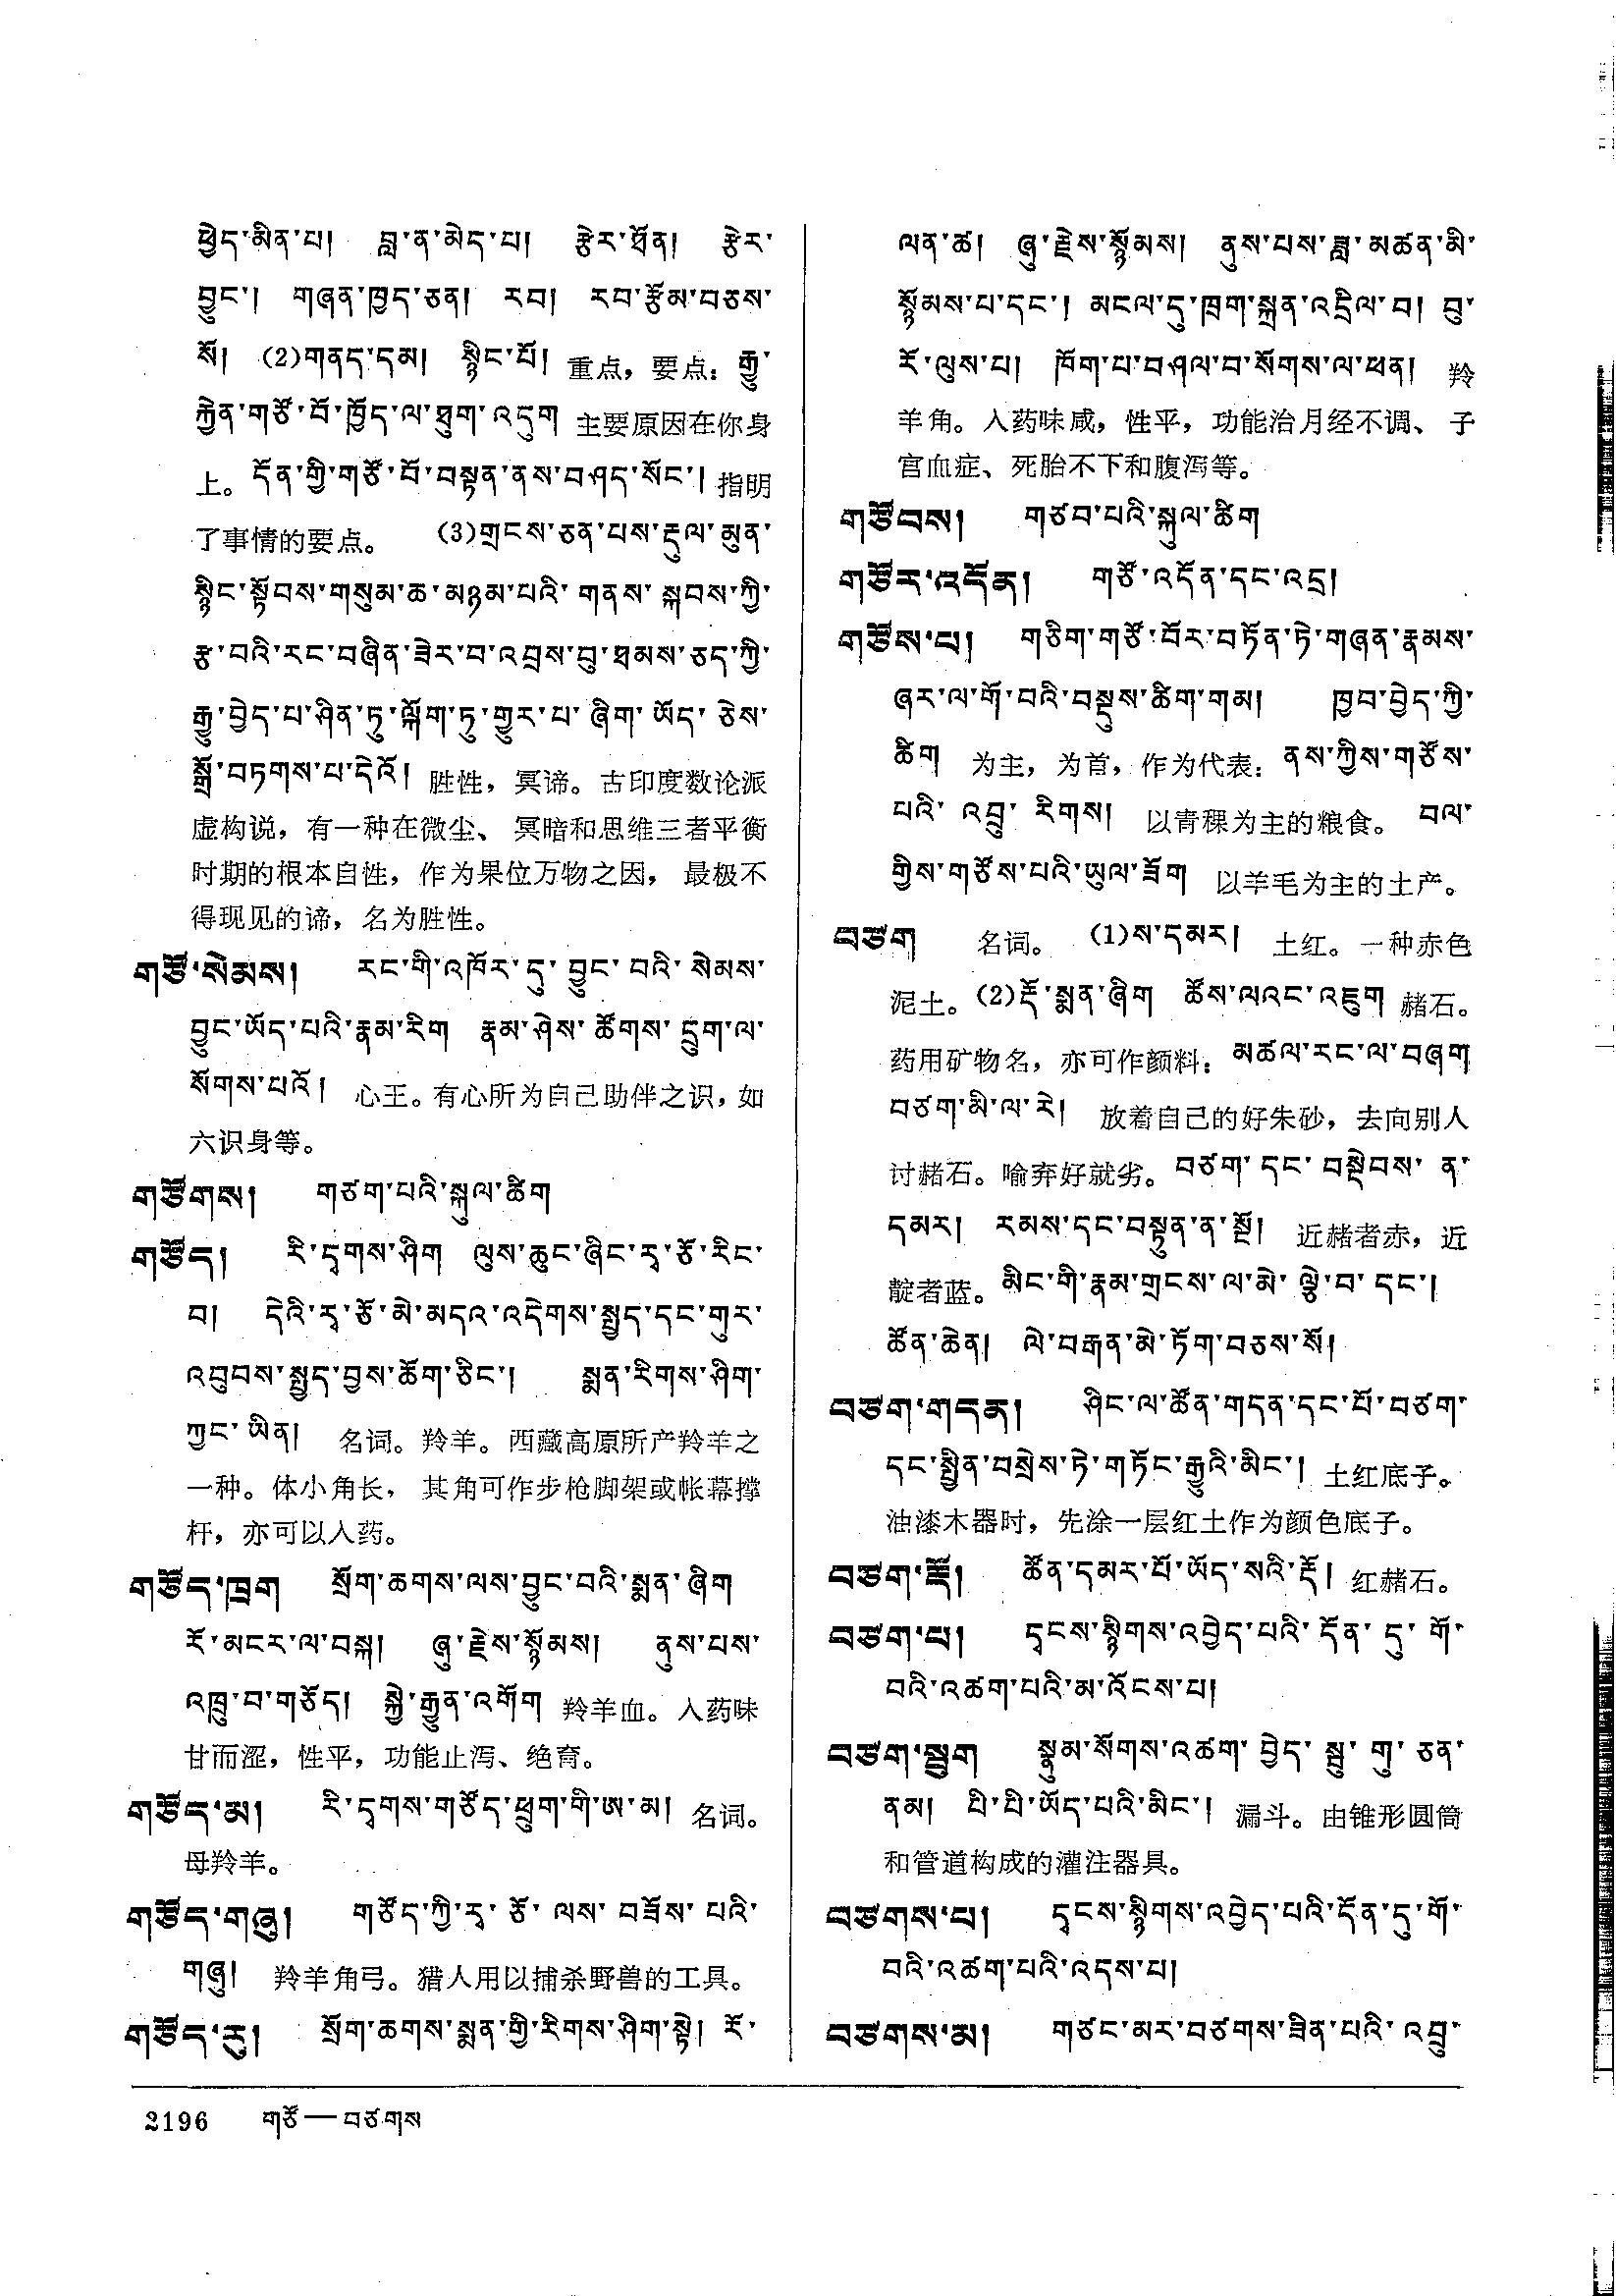 ཕྱེད་མིན་པ། བླ་ན་མེད་པ། རྩེར་ཐོན། རྩེར་
བྱུང་། གཞན་ཁྱད་ཅན། རབ། རབ་རྩོམ་བཅས་
སོ། (2)གནད་དམ། སྙིང་པོ། 重点，要点：རྒྱུ་
རྐྱེན་གཙོ་བོ་ཁྱོད་ལ་ཐུག་འདུག 主要原因在你身
上。དོན་གྱི་གཙོ་བོ་བསྟན་ནས་བཤད་སོང་། 指明
了事情的要点。 (3)གྲངས་ཅན་པས་རྡུལ་མུན་
སྙིང་སྟོབས་གསུམ་ཆ་མཉམ་པའི་གནས་སྐབས་ཀྱི་
རྩ་བའི་རང་བཞིན་ཟེར་བ་འབྲས་བུ་ཐམས་ཅད་ཀྱི་
རྒྱུ་བྱེད་པ་ཤིན་ཏུ་ལྐོག་ཏུ་གྱུར་པ་ཞིག་ཡོད་ཅེས་
སྒྲོ་བཏགས་པ་དེའོ། 胜性，冥谛。古印度数论派
虚构说，有一种在微尘、冥暗和思维三者平衡
时期的根本自性，作为果位万物之因，最极不
得现见的谛，名为胜性。
གཙོ་སེམས། རང་གི་འཁོར་དུ་བྱུང་བའི་སེམས་
བྱུང་ཡོད་པའི་རྣམ་རིག རྣམ་ཤེས་ཚོགས་དྲུག་ལ་
སོགས་པའོ། 心王。有心所为自己助伴之识，如
六识身等。
གཙོགས། གཙག་པའི་སྐུལ་ཚིག
གཙོད། རི་དྭགས་ཤིག ལུས་ཆུང་ཞིང་རྭ་ཅོ་རིང་
བ། དེའི་རྭ་ཅོ་མེ་མདའ་འདེགས་སྤྱད་དང་གུར་
འབུབས་སྤྱད་བྱས་ཆོག་ཅིང་། སྨན་རིགས་ཤིག་
ཀྱང་ཡིན། 名词。羚羊。西藏高原所产羚羊之
一种。体小角长，其角可作步枪脚架或帐幕撑
杆，亦可以入药。
གཙོད་ཁྲག སྲོག་ཆགས་ལས་བྱུང་བའི་སྨན་ཞིག
རོ་མངར་ལ་བསྐ། ཞུ་རྗེས་སྙོམས། ནུས་པས་
འཁྲུ་བ་གཅོད། སྐྱེ་རྒྱུན་འགོག 羚羊血。入药味
甘而涩，性平，功能止泻、绝育。
གཙོད་མ། རི་དྭགས་གཙོད་ཕྲུག་གི་ཨ་མ། 名词。
母羚羊。
གཙོད་གཞུ། གཙོད་ཀྱི་རྭ་ཅོ་ལས་བཟོས་པའི་
གཞུ། 羚羊角弓。猎人用以捕杀野兽的工具。
གཙོད་རུ། སྲོག་ཆགས་སྨན་གྱི་རིགས་ཤིག་སྟེ། རོ་
ལན་ཚ། ཞུ་རྗེས་སྙོམས། ནུས་པས་ཟླ་མཚན་མི་
སྙོམས་པ་དང་། མངལ་དུ་ཁྲག་སྐྲན་འདྲིལ་བ། བུ་
རོ་ལུས་པ། ཁོག་པ་བཤལ་བ་སོགས་ལ་ཕན། 羚
羊角。入药味咸，性平，功能治月经不调、子
宫血症、死胎不下和腹泻等。
གཙོབས། གཙབ་པའི་སྐུལ་ཚིག
གཙོར་འདོན། གཙོ་འདོན་དང་འདྲ།
གཙོས་པ། གཅིག་གཙོ་བོར་བཏོན་ཏེ་གཞན་རྣམས་
ཞར་ལ་གོ་བའི་བསྡུས་ཚིག་གམ། ཁྱབ་བྱེད་ཀྱི་
ཚིག 为主，为首，作为代表：ནས་ཀྱིས་གཙོས་
པའི་འབྲུ་རིགས། 以青稞为主的粮食。 བལ་
གྱིས་གཙོས་པའི་ཡུལ་ཟོག 以羊毛为主的土产。
བཙག 名词。 (1)ས་དམར། 土红。一种赤色
泥土。(2)རྡོ་སྨན་ཞིག ཚོས་ལའང་འཇུག 赭石。
药用矿物名，亦可作颜料：མཚལ་རང་ལ་བཞག
བཙག་མི་ལ་རེ། 放着自己的好朱砂，去向别人
讨赭石。喻弃好就劣。བཙག་དང་བསྡེབས་ན་
དམར། རམས་དང་བསྟུན་ན་སྔོ། 近赭者赤，近
靛者蓝。མིང་གི་རྣམ་གྲངས་ལ་མེ་ལྕེ་བ་དང་།
ཚོན་ཆེན། ལེ་བརྒན་མེ་ཏོག་བཅས་སོ།
བཙག་གདན། ཤིང་ལ་ཚོན་གདན་དང་པོ་བཙག་
དང་སྤྱིན་བསྲེས་ཏེ་གཏོང་རྒྱུའི་མིང་། 土红底子。
油漆木器时，先涂一层红土作为颜色底子。
བཙག་རྡོ། ཚོན་དམར་པོ་ཡོད་སའི་རྡོ། 红赭石。
བཙག་པ། དྭངས་སྙིགས་འབྱེད་པའི་དོན་དུ་གོ་
བའི་འཚག་པའི་མ་འོངས་པ།
བཙག་སྦུག སྣུམ་སོགས་འཚག་བྱེད་སྦུ་གུ་ཅན་
ནམ། པི་པི་ཡོད་པའི་མིང་། 漏斗。由锥形圆筒
和管道构成的灌注器具。
བཙགས་པ། དྭངས་སྙིགས་འབྱེད་པའི་དོན་དུ་གོ་
བའི་འཚག་པའི་འདས་པ།
བཙགས་མ། གཙང་མར་བཙགས་ཟིན་པའི་འབྲུ་
2196 གཙོ—བཙགས